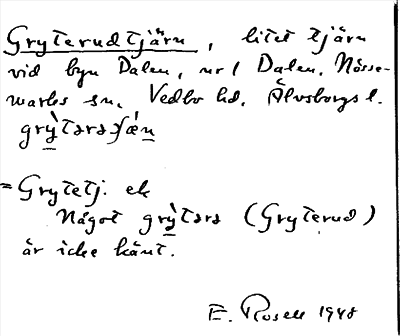 Gryterudtjärn, litet tjärn
vid byn Dalen, nr 1 Dalen. Nösse-
marks sn. Vedbo hd. Älvsborgs l.
grỳ̖tərəʃæ̀n
= Grytetj. ek
Något grỳ̖tərə (Gryterud)
är icke känt.
E. Rosell 1948